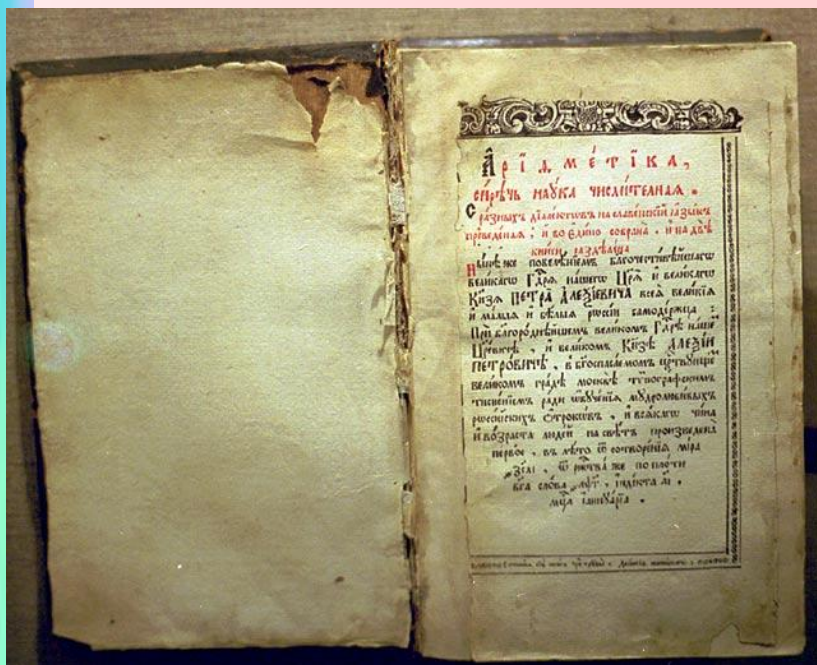 А҆рїѳме́тїка,
си́рѣчь наꙋ́ка числи́телная.
С̾ ра́зныхъ дїале́ктѡвъ на славе́нскїй ꙗ҆зы́къ
преведе́ная, и҆ во є҆ди́но собрана̀, и҆ на двѣ̀
кни̑ги раздѣлена̀.
Ны́нѣ же повелѣ́нїемъ благочести́вѣйшагѡ
вели́кагѡ Гдⷭ҇рѧ на́шегѡ Цр҃ѧ̀ и҆ вели́кагѡ
Кн҃зѧ ПЕТРА̀ А҆ЛЕѮІ́ЕВИЧА всеѧ̀ вели́кїѧ
и҆ ма́лыѧ и҆ бѣ́лыѧ рѡссі́и самоде́ржца:
Прѝ благоро́днѣйшемъ вели́комъ Гдⷭ҇рѣ на́шемъ
Цр҃е́вичѣ, и҆ вели́комъ Кн҃зѣ А҆ЛЕѮІ́И
ПЕТРО́ВИЧѢ, в̾ бг҃оспаса́емомъ црⷭ҇твꙋющемъ
вели́комъ гра́дѣ москвѣ̀ тѷпогра́фскимъ
тисне́нїемъ ра́ди ѡ҆бꙋче́нїѧ мꙋдролюби́выхъ
рѡссі́йскихъ ѻ҆́трокѡвъ, и҆ всѧ́кагѡ чи́на
и҆ во́зраста люде́й на свѣ́тъ произведена̀
пе́рвое, въ лѣ́то ѿ сотворе́нїѧ мі́ра
҂зсаі, ѿ ржⷭ҇тва́ же по пло́ти
бг҃а сло́ва ҂аѱг, і҆ндїкта аі.
мцⷭ҇а і҆аннꙋа́рїа.